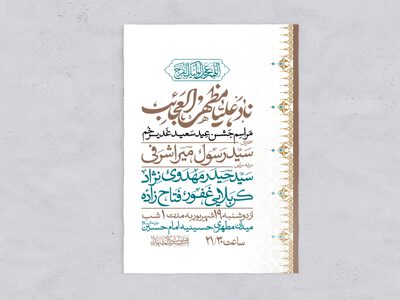 اللهم عجل لولیک الفرج
ناد علیا مظهر العجائب
مراسم جشن عید سعید غدیر خم
سید رسول میراشرفی
سید حیدر مهدوی نژاد
کربلایی غفور فتاح زاده
از دوشنبه ۱۹ شهریور به مدت ۱ شب
میدان مطهری حسینیه امام حسین
ساعت ۲۱/۳۰